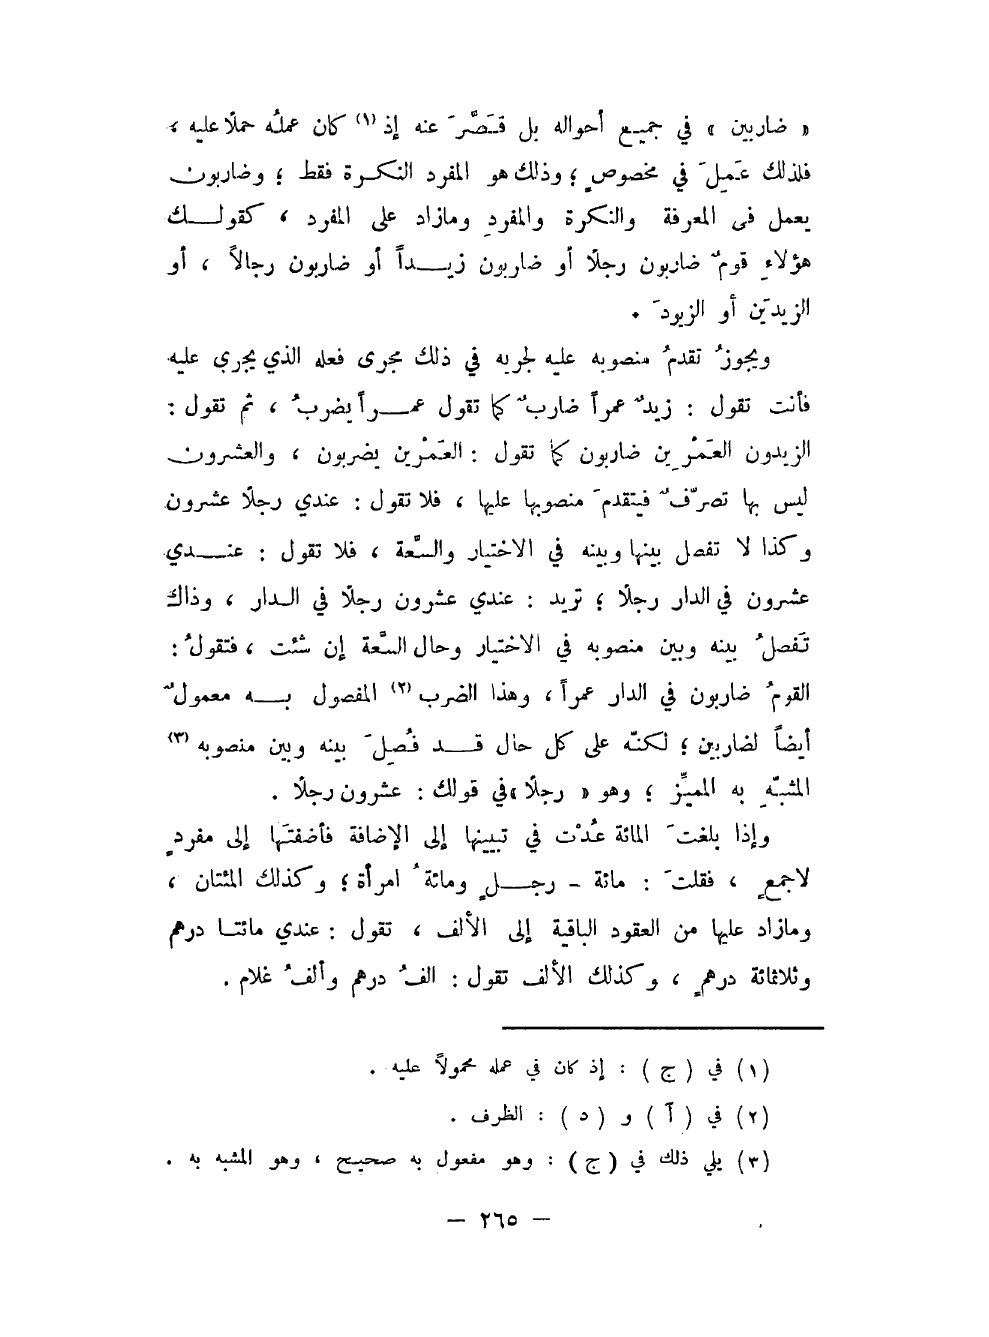 « ضاربين » في جميع أحواله بل قَصَّرَ عنه إذ (١) كان عملُه حملًا عليه ،
فلذلك عَمِلَ في مخصوصٍ ؛ وذلك هو المفرد النكرة فقط ؛ وضاربون
يعمل فى المعرفة والنكرة والمفردِ ومازاد على المفرد ، كقولك
هؤلاءِ قومٌ ضاربون رجلًا أو ضاربون زيداً أو ضاربون رجالاً ، أو
الزيدَين أو الزيودَ .
ويجوزُ تقدمُ منصوبه عليه لجريه في ذلك مجرى فعله الذي يجري عليه
فأنت تقول : زيدٌ عمراً ضاربٌ كما تقول عمراً يضربُ ، ثم تقول :
الزيدون العَمْرين ضاربون كما تقول : العَمْرين يضربون ، والعشرون
ليس بها تصرّفٌ فيتقدمَ منصوبها عليها ، فلا تقول : عندي رجلًا عشرون
وكذا لا تفصل بينها وبينه في الاختيار والسَّعة ، فلا تقول : عندي
عشرون في الدار رجلًا ؛ تريد : عندي عشرون رجلًا في الدار ، وذاك
تَفصلُ بينه وبين منصوبه في الاختيار وحال السَّعة إن شئت ، فتقولُ :
القومُ ضاربون في الدار عمراً ، وهذا الضرب (٢) المفصول به معمولٌ
أيضاً لضاربين ؛ لكنّه على كل حال قد فُصِلَ بينه وبين منصوبه (٣)
المشبّهِ به المميِّز ؛ وهو « رجلًا » في قولك : عشرون رجلًا .
وإذا بلغتَ المائة عُدْت في تبيينها إلى الإضافة فأضفتَها إلى مفردٍ
لاجمعٍ ، فقلتَ : مائة - رجلٍ ومائةُ امرأة ؛ وكذلك المئتان ،
ومازاد عليها من العقود الباقية إلى الألف ، تقول : عندي مائتا درهم
وثلاثمائة درهمٍ ، وكذلك الألف تقول : الفُ درهم وألفُ غلام .
(١) في ( ج ) : إذ كان في عمله محمولاً عليه .
(٢) في ( آ ) و ( د ) : الظرف .
(٣) يلي ذلك في ( ج ) : وهو مفعول به صحيح ، وهو المشبه به .
— ٢٦٥ —